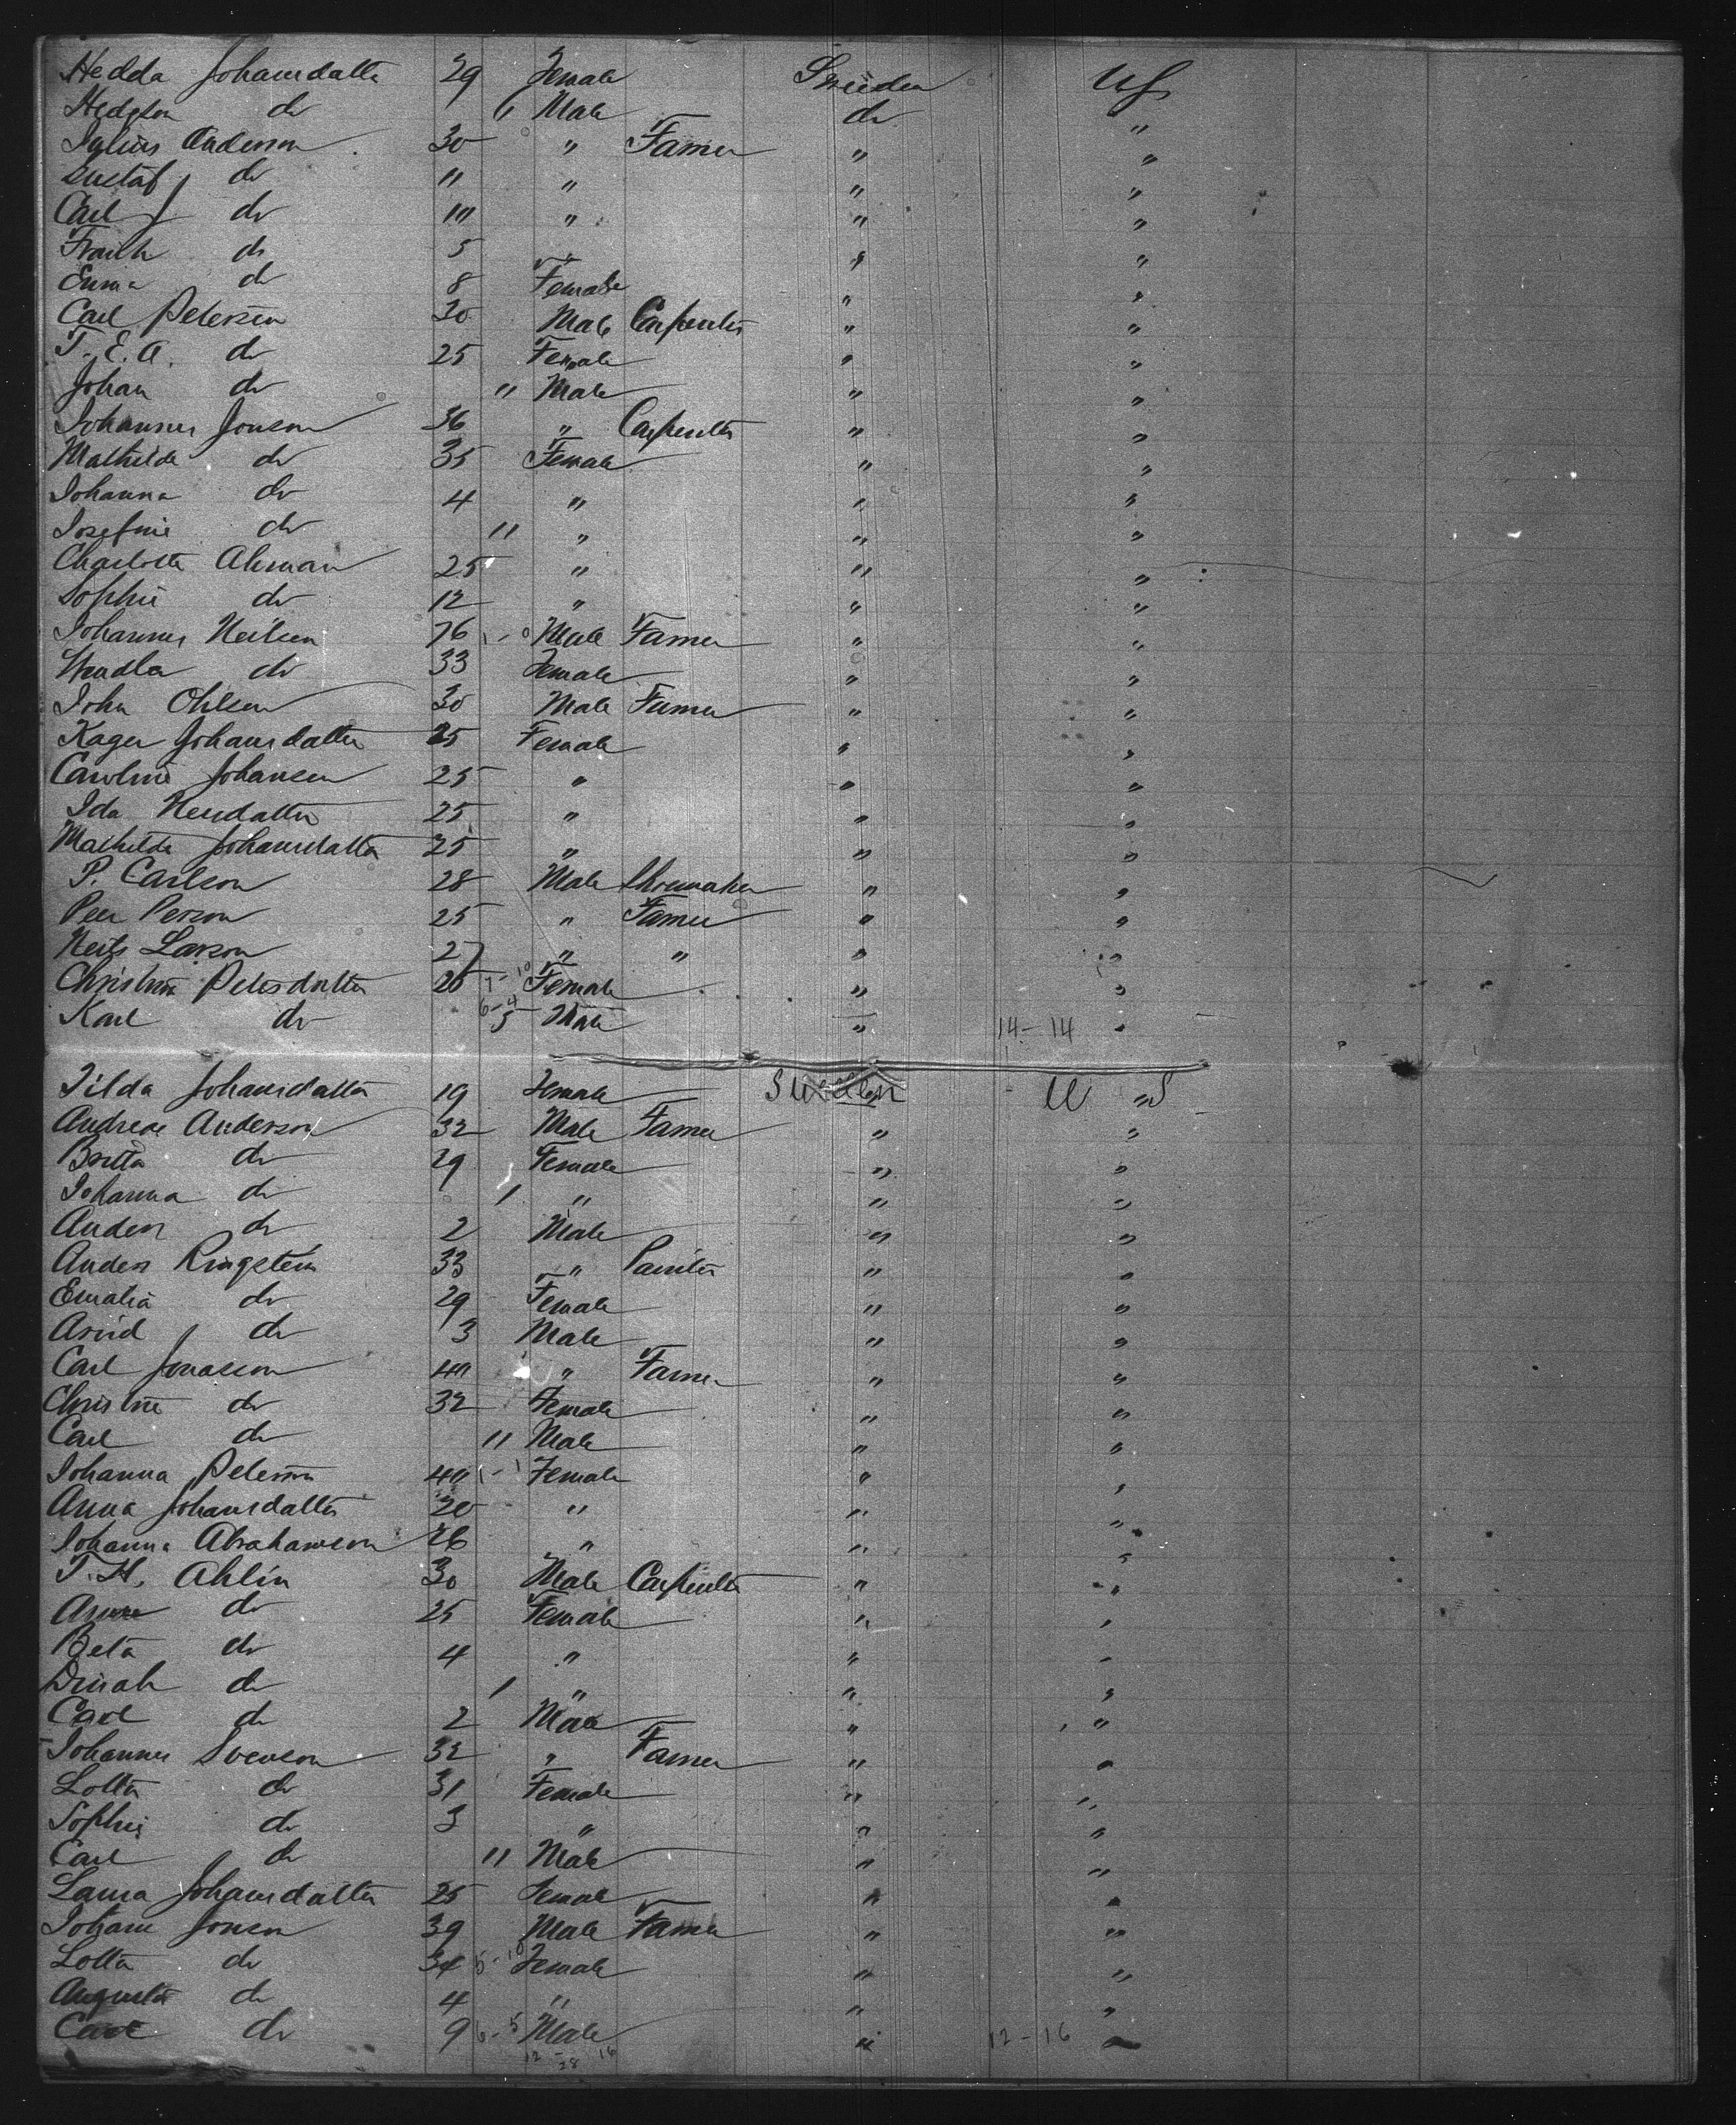 Hedda Johansdatter 29 Female Sweeden US
Hedgson do 6 Male do "
Julius Anderson 30 " Famer " "
Gustaf do 11 " " "
Carl J do 10 " " "
Frank do 5 " " "
Emma do 8 Female " "
Carl Petersen 30 Male Carpenter " "
T. E. A. do 25 Female " "
Johan do 11 Male " "
Johannes Jonson 36 " Carpenter " "
Mathilde do 35 Female " "
Johanna do 4 " " "
Josefine do 11 " " "
Charlotte Ahman 25 " " "
Sophie do 12 " " "
Johannes Neilsen 76 1-0 Male Famer " "
Hendla do 33 Female " "
John Ohlsen 30 Male Famer " "
Kagen Johansdatter 25 Female " "
Caroline Johansen 25 " " "
Ida Neusdatter 25 " " "
Mathilde Johansdatter 25 " " "
P. Carlson 28 Male Shoemaker " "
Peer Person 25 " Famer " "
Neils Larson 27 " " " "
Christine Petersdatter 26 7-10 Female " "
Karl do 6-4 5 Male " 14-14 "
Tilda Johansdatter 19 Female Sweden U S
Andreas Anderson 32 Male Famer " "
Britta do 29 Female " "
Johanna do 1 " " "
Anders do 2 Male " "
Anders Ringstein 33 " Painter " "
Emalia do 29 Female " "
Arvid do 3 Male " "
Carl Jonasson 40 " Famer " "
Christine do 32 Female " "
Carl do 11 Male " "
Johanna Peterson 40 1-1 Female " "
Anna Johansdatter 20 " " "
Johanna Abrahamson 26 " " "
T. H. Ahlin 30 Male Carpenter " "
Anna do 25 Female " "
Beta do 4 " " "
Dinah do 1 " " "
Carl do 2 Male " "
Johannes Svenson 32 " Famer " "
Lotta do 31 Female " "
Sophie do 3 " " "
Carl do 11 Male " "
Laura Johansdatter 25 Female " "
Johan Jonson 39 Male Famer " "
Lotta do 34 5-10 Female " "
Augusta do 4 " " "
Carl do 9 6-5 Male " 12-16 "
12-16
28